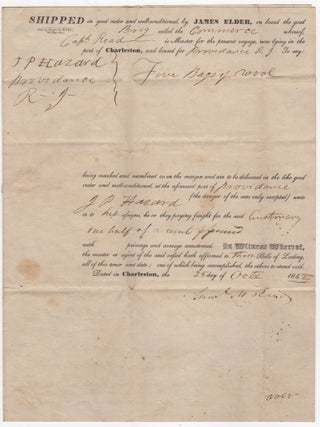 SHIPPED in good order and well-conditioned, by JAMES ELDER, on board the good
Brig called the Commerce whereof,
Capt. Read is Master for the present voyage, now lying in the
port of Charleston, and bound for Providence R I To say:
J P Hazard
Providance
R - I -
Five Bags of Wool
being marked and numbered as in the margin and are to be delivered in the like good
order and well-conditioned, at the aforesaid port of Providence
(the danger of the seas only excepted) unto
J. P. Hazard
or to his assigns, he or they paying freight for the said Customary
one half of a cent pr pound
with primage and average accustomed. In Witness Whereof,
the master or agent of the said vessel hath affirmed to Three Bills of Lading,
all of this tenor and date; one of which being accomplished, the others to stand void.
Dated in Charleston, the 25 day of Octr 184
Saml M
over